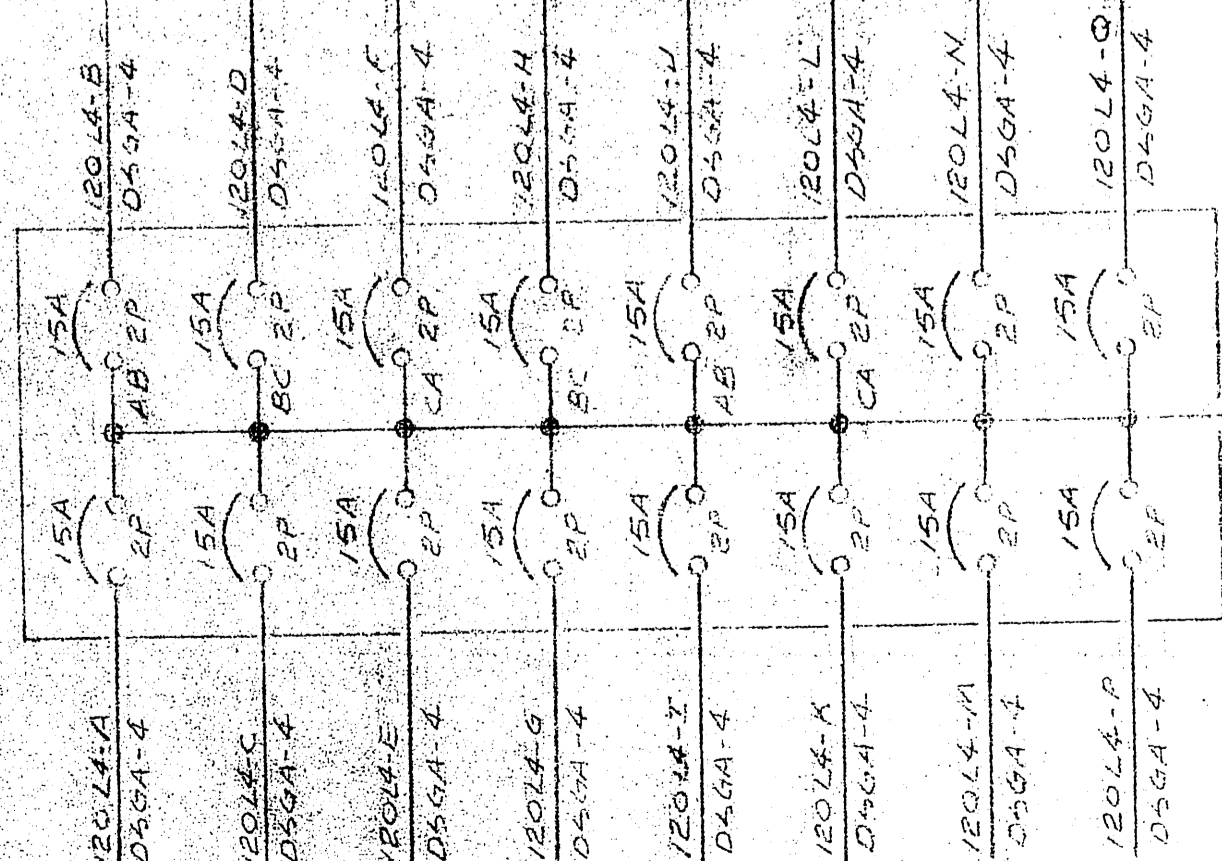 120L4-B
DSGA-4
120L4-D
DSGA-4
120L4-F
DSGA-4
120L4-H
DSGA-4
120L4-J
DSGA-4
120L4-L
DSGA-4
120L4-N
DSGA-4
120L4-Q
DSGA-4
15A
2P
15A
2P
15A
2P
15A
2P
15A
2P
15A
2P
15A
2P
15A
2P
AB
BC
CA
BC
AB
CA
15A
2P
15A
2P
15A
2P
15A
2P
15A
2P
15A
2P
15A
2P
15A
2P
120L4-A
DSGA-4
120L4-C
DSGA-4
120L4-E
DSGA-4
120L4-G
DSGA-4
120L4-I
DSGA-4
120L4-K
DSGA-4
120L4-M
DSGA-4
120L4-P
DSGA-4